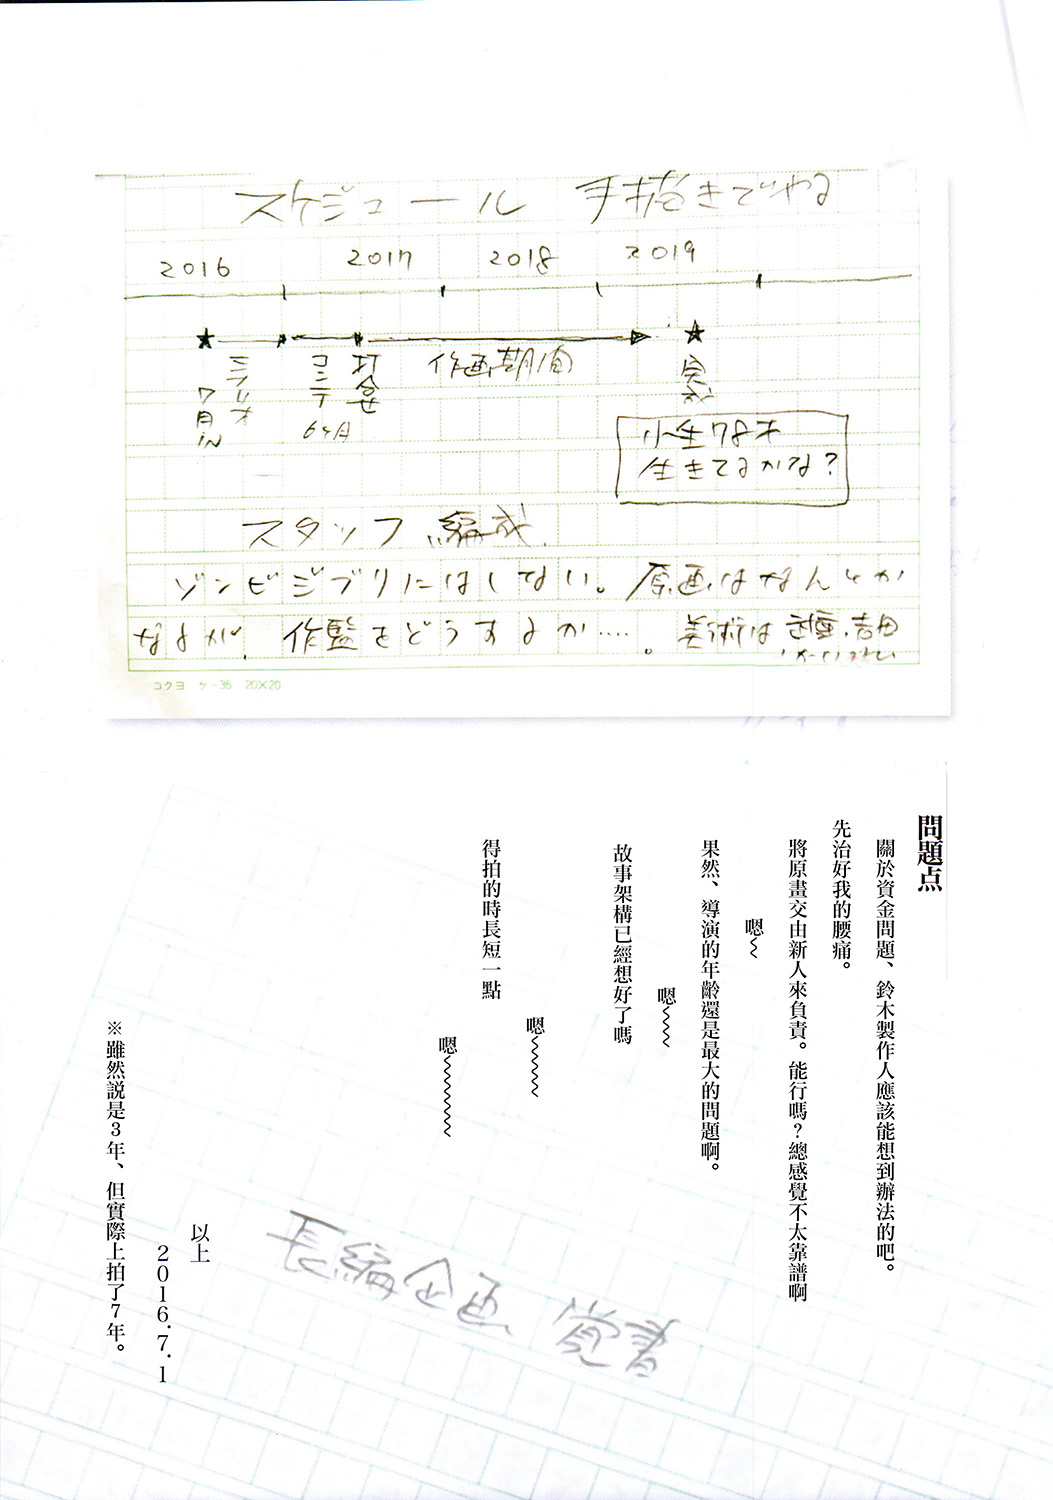 スケジュール 手描きでやる
2016 2017 2018 2019
シナリオ
7月iN
コンテ
6ヶ月
打合せ
作画期間
完成
小生78才
生きてるかな?
スタッフ編成
ゾンビジブリにはしない。原画はなんとか
なるが、作監をどうするか‥‥。美術は 吉田
コクヨ ケー35 20×20
問題点
關於資金問題、鈴木製作人應該能想到辦法的吧。
先治好我的腰痛。
將原畫交由新人來負責。能行嗎?總感覺不太靠譜啊
嗯〜
果然、導演的年齡還是最大的問題啊。
嗯〜〜
故事架構已經想好了嗎
嗯〜〜〜
得拍的時長短一點
嗯〜〜〜〜
以上
2016.7.1
※雖然説是3年、但實際上拍了7年。
長編企画 覚書